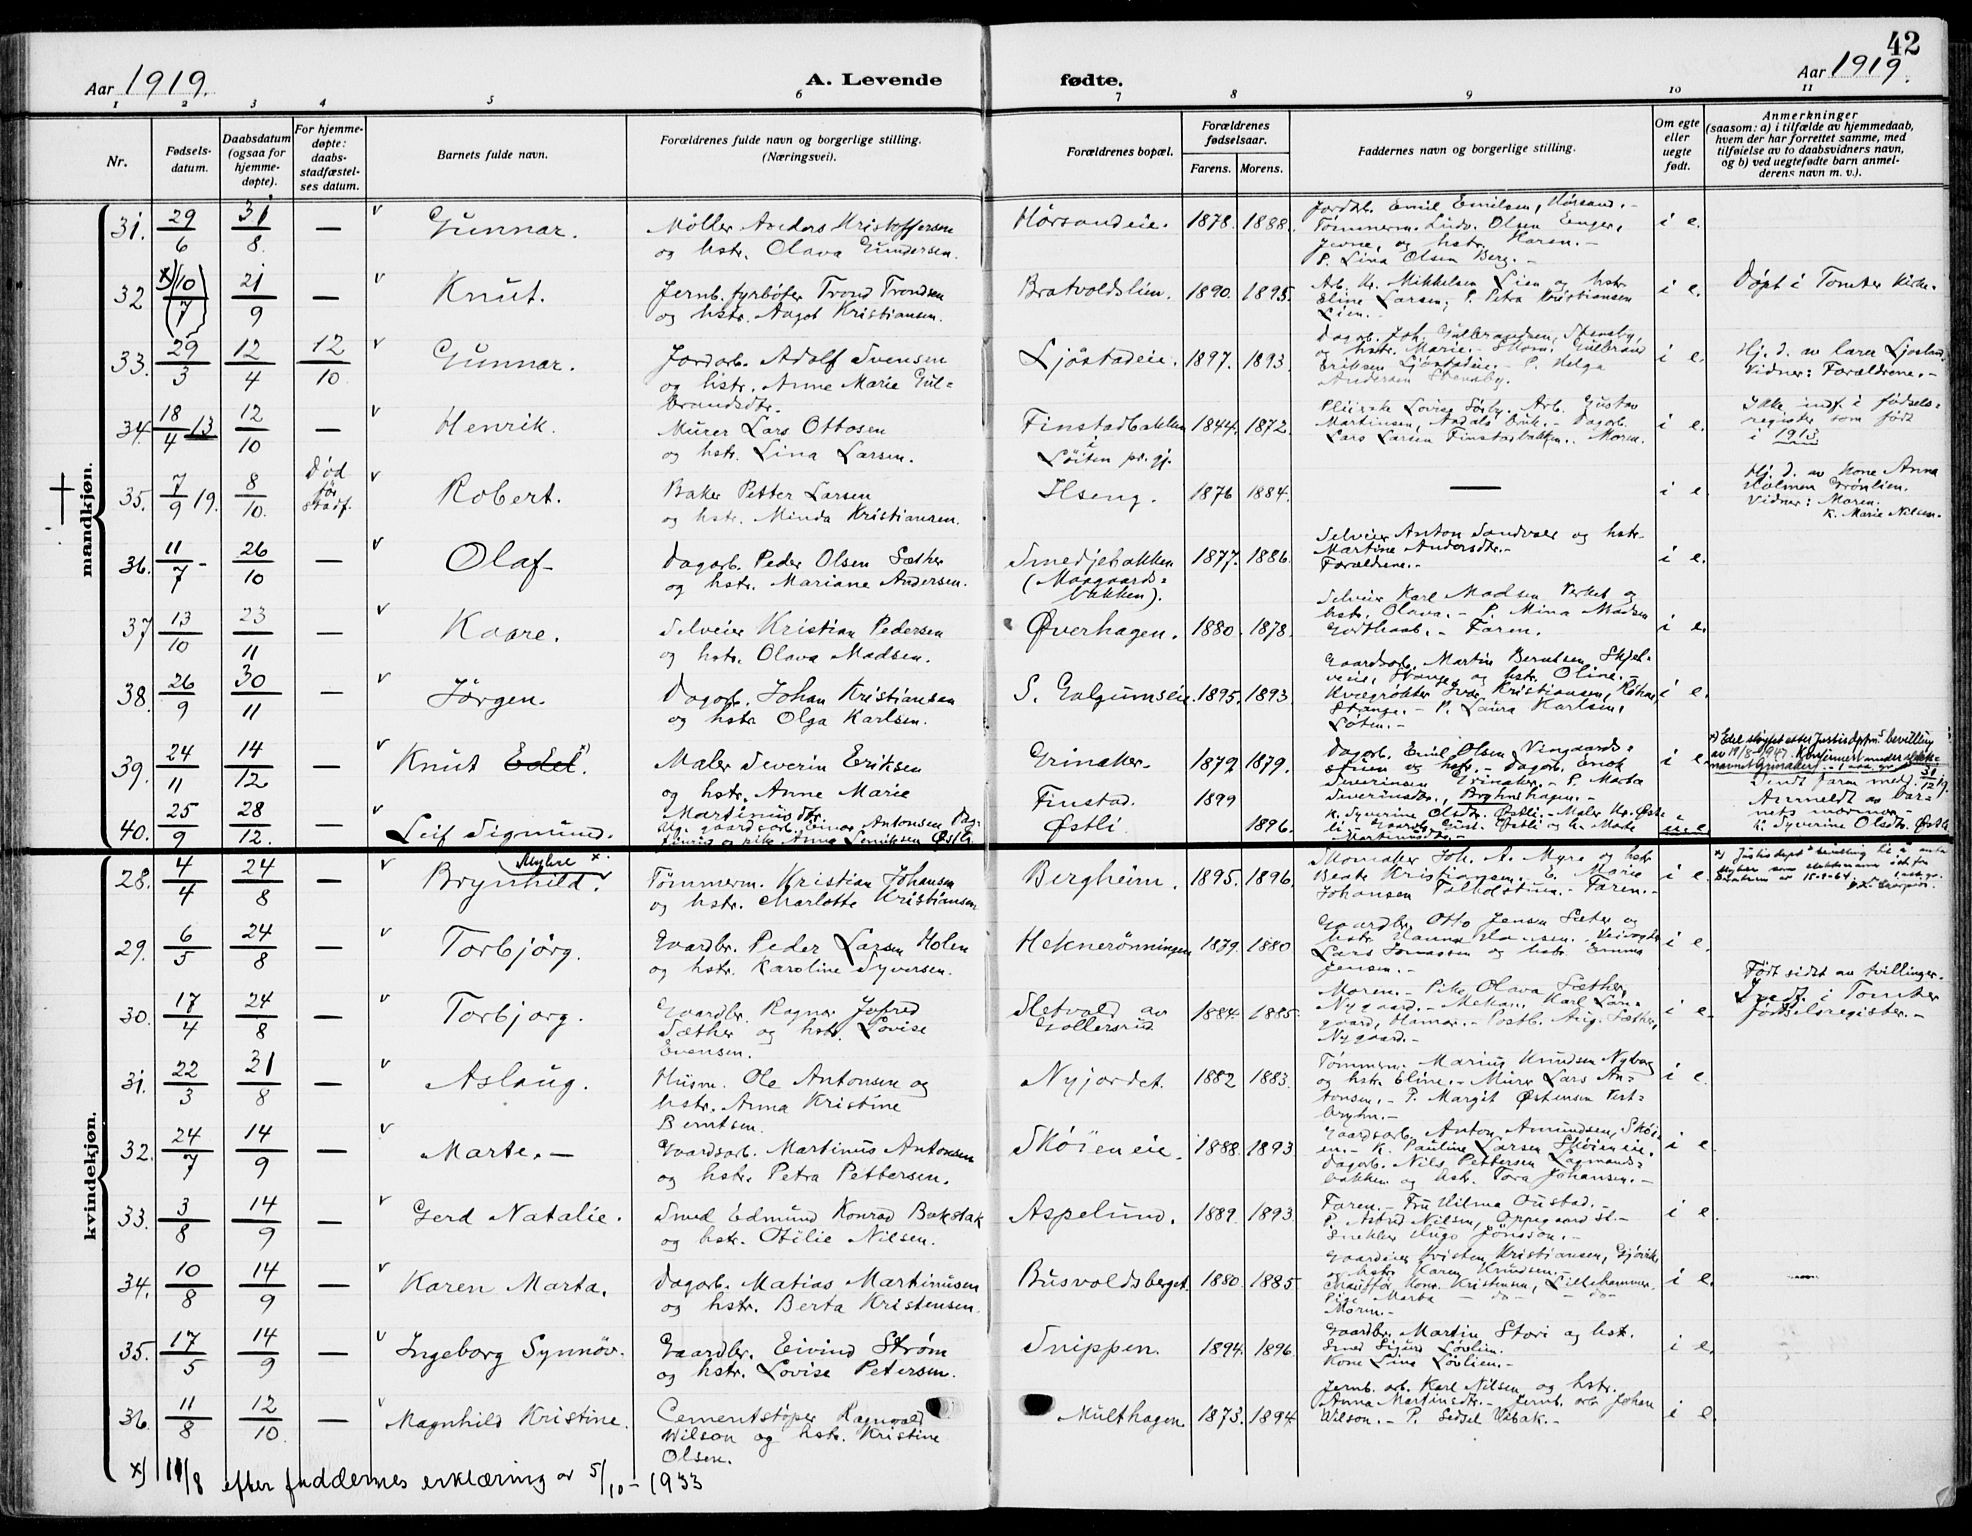 42
Aar 1919.
A. Levende fødte.
Aar 1919.
1 2 3 4 5 6 7 8 9 10 11
Nr.
Fødsels-
datum.
Daabsdatum
(ogsaa for
hjemme-
døpte).
For hjemme-
døpte:
daabs-
stadfæstel-
ses datum.
Barnets fulde navn.
Forældrenes fulde navn og borgerlige stilling.
(Næringsvei).
Forældrenes bopæl.
Forældrenes
fødselsaar.
Farens. Morens.
Faddernes navn og borgerlige stilling.
Om egte
eller
uegte
født.
Anmerkninger
(saasom: a) i tilfælde av hjemmedaab,
hvem der har forrettet samme, med
tilføielse av to daabsvidners navn,
og b) ved uegtefødte barn anmel-
derens navn m. v.).
mandkjøn.
31. 29/6 31/8. — v Gunnar. Møller Anders Kristoffersen
og hstr. Olava Gundersen. Hørsandeie. 1878. 1888. i e.
Jordarb. Emil Emilsen, Hørsand. -
Tømmerm. Ludv. Olsen Enger,
Jevne, og hstr. Karen. -
P. Lina Olsen Berg. -
32 x) (10/7) 21/9 — v Knut. Jernb. fyrbøter Trond Trondsen
og hstr. Aagot Kristiansen. Bratvoldslien. 1890. 1895. i e.
Arb. Kr. Mikkelsen Lien og hstr
Eline Larsen; P. Petra Kristiansen
Lien. -
Døpt i Tomter Kirke.
33. 29/3 12/4 12/10 v Gunnar. Jordarb. Adolf Svensen
og hstr. Anne Marie Gul=
brandsdtr. Ljøstadeie. 1897. 1893. i e.
Dagarb. Joh. Gulbrandsen, Stensby,
og hstr. Marie. Gulbrand
Eriksen Ljøstadeie. - P. Helga
Andersen Stensby.
Hj. d. av lærer Ljøstad
Vidner: Forældrene. -
34. 18/4 13 12/10 — v Henrik. Murer Lars Ottosen
og hstr. Lina Larsen. Finstadbakken
i
Løiten pr. gj. 1844. 1872. i e.
Lovise Sørby. Arb. Gustav
Martinsen, - Dagarb.
Lars Larsen Finstadbakken. Moren.
Ikke indf. i fødsels=
register som født
i 1913
35. 7/9 19. 8/10. Død
før
stadf. v Robert. Baker Petter Larsen
og hstr. Minda Kristiansen. Ilseng. 1876 1884. — i e.
Hj. d. av Kone Anna
Holmen Grønlien.
Vidner: Moren.
K. Marie Nilsen.
36. 11/7 - 26/10 — v Olaf Dagarb. Peder Olsen Sæther
og hstr. Mariane Andersen. Smedjebakken
(Maagaards=
bakken). 1877. 1886. i e.
Selveier Anton Sandvær og hstr.
Martine Andersdtr. -
Forældrene. -
37 13/10 23/11 — v Kaare. Selveier Kristian Pedersen
og hstr. Olava Madsen. Øverhagen. 1880. 1878. i e.
Selveier Karl Madsen Verket og
hstr. Olava. - P. Mina Madsen
Godthaab. - Faren.
38. 26/9 30/11 — v Jørgen. Dagarb. Johan Kristiansen
og hstr Olga Karlsen. S. Galgumseie. 1895. 1893. i e.
Gaardsarb. Martin Berntsen Skjel=
veie, Stange, og hstr. Oline. -
Kvægrøkter Ivar Kristiansen,
Stange. - P. Laura Karlsen,
Løten. -
39. 24/11 14/12 — v Knut Edel. Maler Severin Eriksen
og hstr. Anne Marie
Martinusdtr. Grinaker. 1879. 1879. i e.
Dagarb. Emil Olsen Vingaards=
stuen og hstr. - Dagarb. Enok
Severinsen Grinaker. - P. Marta
Severinsdtr., Bryhnshagen. -
40. 25/9 28/12. — Leif Sigmund. Ug. gaardsarb. Einar Antonsen
og pike Anna Lovise Østli. Finstad. Østli. 1899 1896. u e.
K. Syverine Olsdtr. Østli. - Maler
Anmeldt av bar=
nets mormor -
K. Syverine Olsdtr. Østli.
kvindekjøn.
28. 4/4 24/8 — v Myhre x.
Brynhild. Tømmerm. Kristian Johansen
og hstr. Charlotte Kristiansen Bergheim. 1895. 1896. i e.
Skomaker Joh. A. Myre og hstr
Beate Kristiansen. E. Marie
Johansen - Faren. -
29. 6/5 24/8 — v Torbjørg. Gaardbr. Peder Larsen Holen
og hstr. Karoline Syversen. Heknerønningen 1879. 1880 i e.
Gaardbr. Otto Jensen Sæter og
hstr. Hanna Hansen.
Lars Tomassen og hstr. Emma
Jensen. -
30. 17/4 24/8 — v Torbjørg. Gaardbr. Ragnar Jofred
Sæther og hstr. Lovise
Evensen. Sletvold av
Gollersrud 1884. 1885. i e.
Moren. - Pike Olava Sæther,
Nygaard. - Mekan. Karl Lan=
gaard, Hamar. - Postb. Aug. Sæther,
Nygaard. -
Født sidst av tvillinger.
Indf. i Tomter
fødselsregister. -
31. 22/3 31/8 — v Aslaug. Husm. Ole Antonsen og
hstr. Anna Kristine
Berntsen. Nyjordet. 1882 1883. i e.
Tømmerm. Marius Knudsen Nyborg
og hstr. Eline. - Murer Lars An=
tonsen. - P. Margit Østensen Vest=
bryhn. -
32. 24/7 14/9 — v Marte. — Gaardsarb. Martinus Antonsen
og hstr. Petra Pettersen. Skøieneie. 1888. 1893. i e.
Gaardsarb. Anton Amundsen, Skøi=
en. - K. Pauline Larsen Skøieneie.
Dagarb. Nils Pettersen Lagmands=
bakken og hstr. Tora Johansen. -
33. 3/8 14/9 — v Gerd Natalie. Smed Edmund Konrad Bakstak
og hstr. Otilie Nilsen. Aspelund. 1889. 1893. i e.
Faren. - Fru Vilma Oustad. -
P. Astrid Nilsen, Oppegaard st. -
Snekker Hugo Jönsson. -
34. 10/8 14/9 — v Karen Marta. Dagarb. Matias Martinusen
og hstr. Berta Kristensen. Busvoldsberget. 1880. 1885. i e.
Gaardeier Kristen Kristiansen, Gjøvik,
og hstr. Karen Knudsen. -
Chauffør Konr. Kristensen, Lillehammer.
Pige Marta — do — do —
Moren. -
35. 17/5 14/9 — v Ingeborg Synnøv. Gaardbr. Eivind Strøm
og hstr. Lovise Petersen. Snippen. 1894. 1896. i e.
Gaardbr. Martin Stori og hstr.
Smed Sigurd Løvlien.
Kone Lina Løvlien. -
36. 11/8 12/10. — v Magnhild Kristine. Cementstøper Ragnvald
Wilson og hstr. Kristine
Olsen. Multhagen. 1873. 1894. i e.
Jernb. arb. Karl Nilsen og hstr.
Anna Martinsdtr. - Jernb. arb Johan
Wilson. - P. Sedsel Vibak. -
x) 11/8 efter faddernes erklæring av 5/10 - 1933